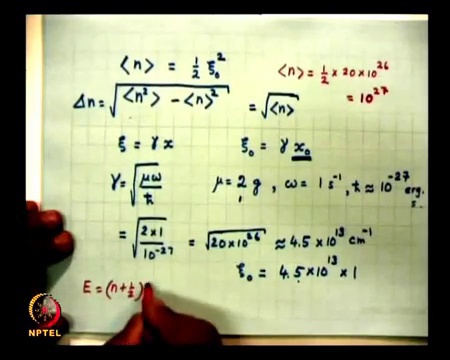 ⟨n⟩ = 1/2 ξ₀²
⟨n⟩ = 1/2 × 20 × 10²⁶
= 10²⁷
Δn = √(⟨n²⟩ − ⟨n⟩²) = √⟨n⟩
ξ = γ x    ξ₀ = γ x₀
γ = √(μω/ħ)    μ = 2 g , ω = 1 s⁻¹, ħ ≈ 10⁻²⁷ erg. s.
= √(2×1/10⁻²⁷) = √(20×10²⁶) ≈ 4.5 × 10¹³ cm⁻¹
ξ₀ = 4.5 × 10¹³ × 1
E = (n + 1/2)
NPTEL